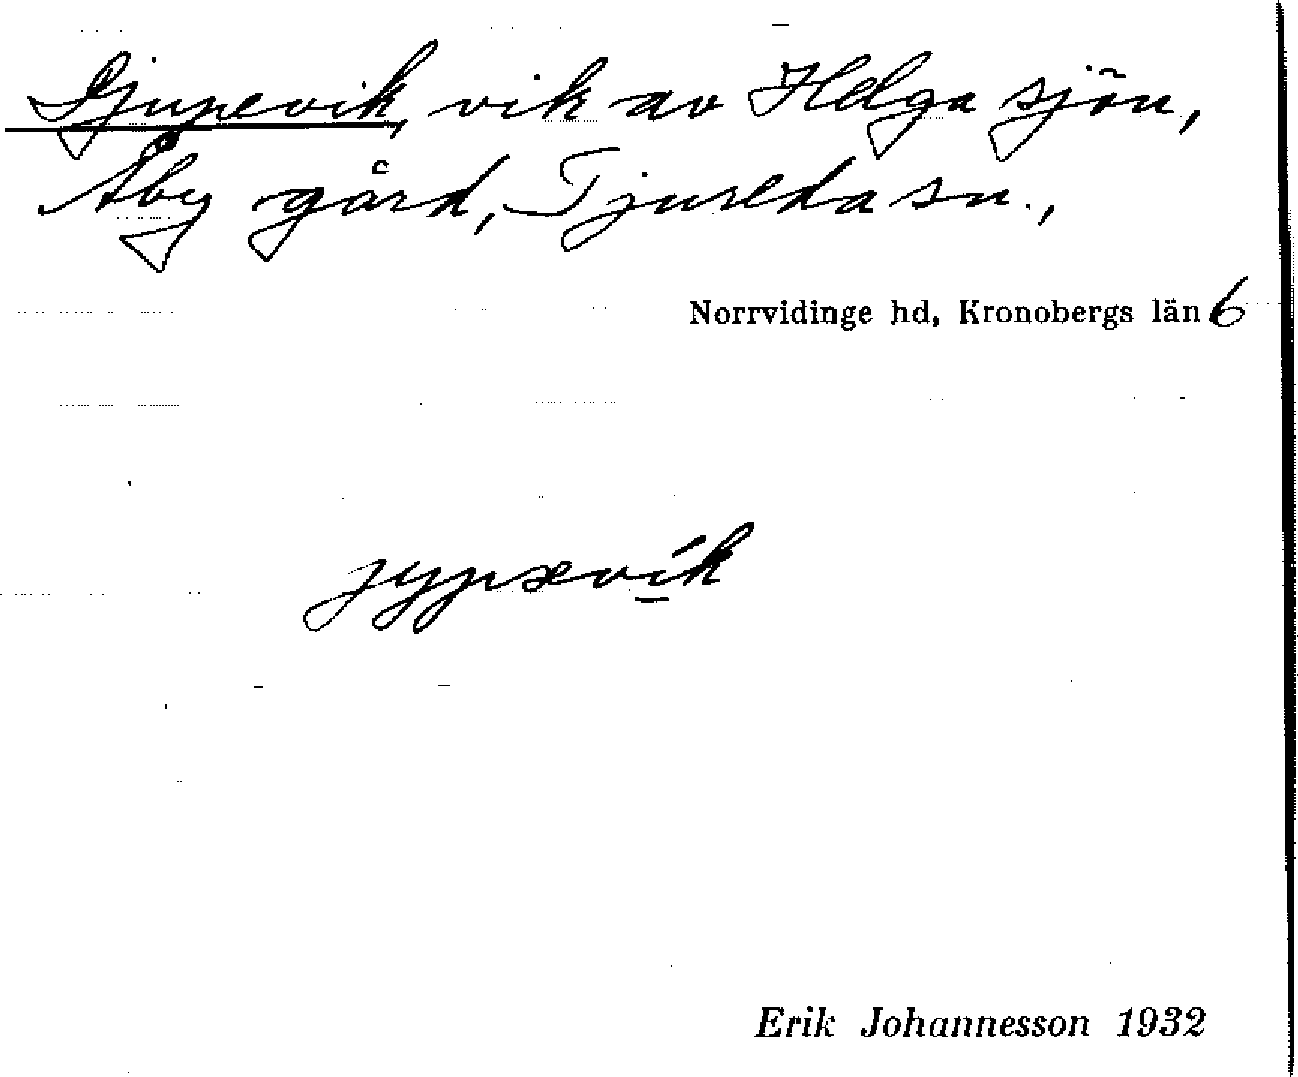 Djupevik, vik av Helgasjön,
Åby gård, Tjureda sn.,
Norrvidinge hd, Kronobergs län 6
jypævik
Erik Johannesson 1932